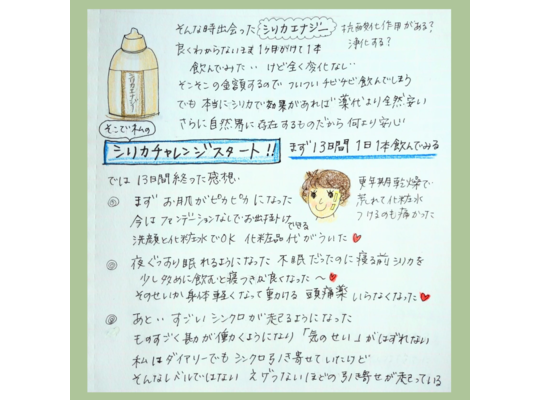 そんな時出会った シリカエナジー 抗酸化作用がある？
浄化する？
良くわからないまま 1ヶ月かけて1本
飲んでみた‥ けど全く変化なし‥
そこそこの金額するので ついつい チビチビ飲んでしまう
でも 本当にシリカで効果があれば 薬代より全然安い
さらに自然界に存在するものだから 何より安心
シリカエナジー
そこで私の
シリカチャレンジスタート!! まず13日間 1日1本飲んでみる
では 13日間終った感想‥
◎ まず お肌がピカピカになった
今は ファンデーションなしでお出掛けできる
洗顔と化粧水でOK 化粧品代がういた
更年期乾燥で
荒れて化粧水
つけるのも痛かった
◎ 夜ぐっすり眠れるようになった 不眠だったのに寝る前シリカを
少し多めに飲むと寝つきが良くなった〜
そのせいか身体軽くなって動ける 頭痛薬 いらなくなった
◎ あと‥ すごいシンクロが起こるようになった
ものすごく勘が働くようになり 「気のせい」がはずれない
私はダイアリーでも シンクロ引き寄せていたけど
そんなレベルではない えげつないほどの引き寄せが起こっている